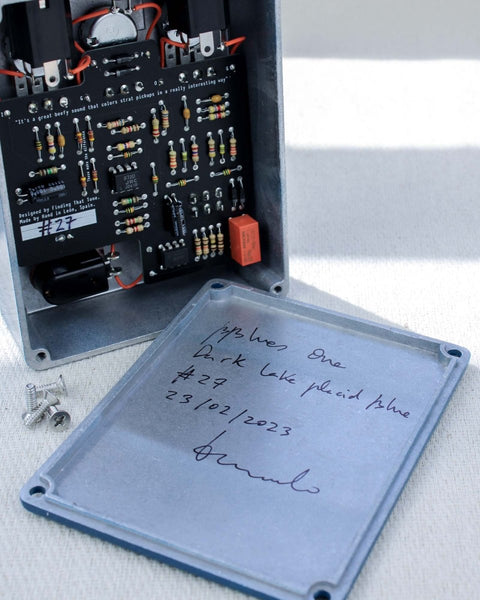 "It's a great beefy sound that colors strat pickups in a really interesting way"
Designed by Finding That Tone.
Made by Hand in León, Spain.
#27
BBlues One
Dark Lake placid Blue
#27
23/02/2023